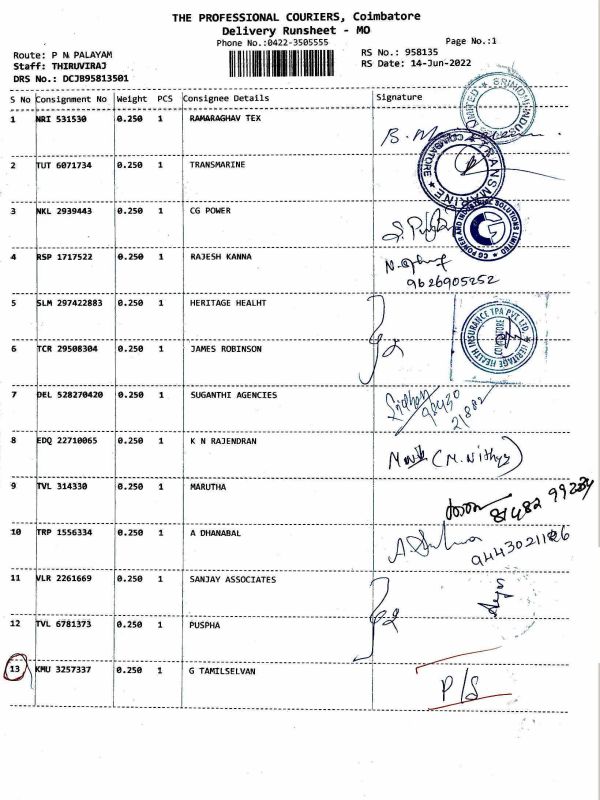 THE PROFESSIONAL COURIERS, Coimbatore
Delivery Runsheet - MO
Phone No.:0422-3505555
Page No.:1
Route: P N PALAYAM
RS No.: 958135
Staff: THIRUVIRAJ
RS Date: 14-Jun-2022
DRS No.: DCJB95813501
S No Consignment No Weight PCS Consignee Details Signature
1 NRI 531530 0.250 1 RAMARAGHAV TEX
2 TUT 6071734 0.250 1 TRANSMARINE
TRANSMARINE ★ COIMBATORE ★
3 NKL 2939443 0.250 1 CG POWER
CG POWER AND INDUSTRIAL SOLUTIONS LIMITED ★
4 RSP 1717522 0.250 1 RAJESH KANNA
9626905252
5 SLM 297422883 0.250 1 HERITAGE HEALHT
★ HERITAGE HEALTH INSURANCE TPA PVT. LTD.
COIMBATORE
6 TCR 29508304 0.250 1 JAMES ROBINSON
2
7 DEL 528270420 0.250 1 SUGANTHI AGENCIES
90430
21882
8 EDQ 22710065 0.250 1 K N RAJENDRAN
(M. Nithya)
9 TVL 314330 0.250 1 MARUTHA
81482 99234
10 TRP 1556334 0.250 1 A DHANABAL
11 VLR 2261669 0.250 1 SANJAY ASSOCIATES
12 TVL 6781373 0.250 1 PUSPHA
2
13 KMU 3257337 0.250 1 G TAMILSELVAN
P/S